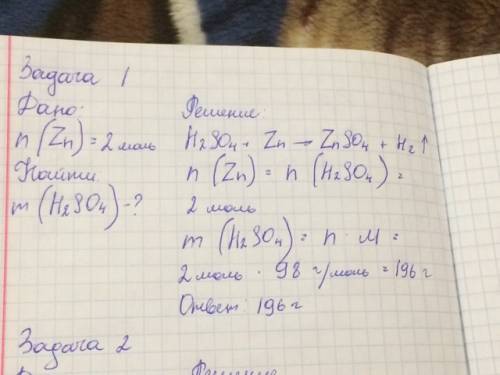 Задача 1
Дано:
n (Zn) = 2 моль
Найти
m (H2SO4) - ?
Решение:
H2SO4 + Zn → ZnSO4 + H2↑
n (Zn) = n (H2SO4) =
2 моль
m (H2SO4) = n · M =
2 моль · 98 г/моль = 196 г
Ответ: 196 г
Задача 2
Решение